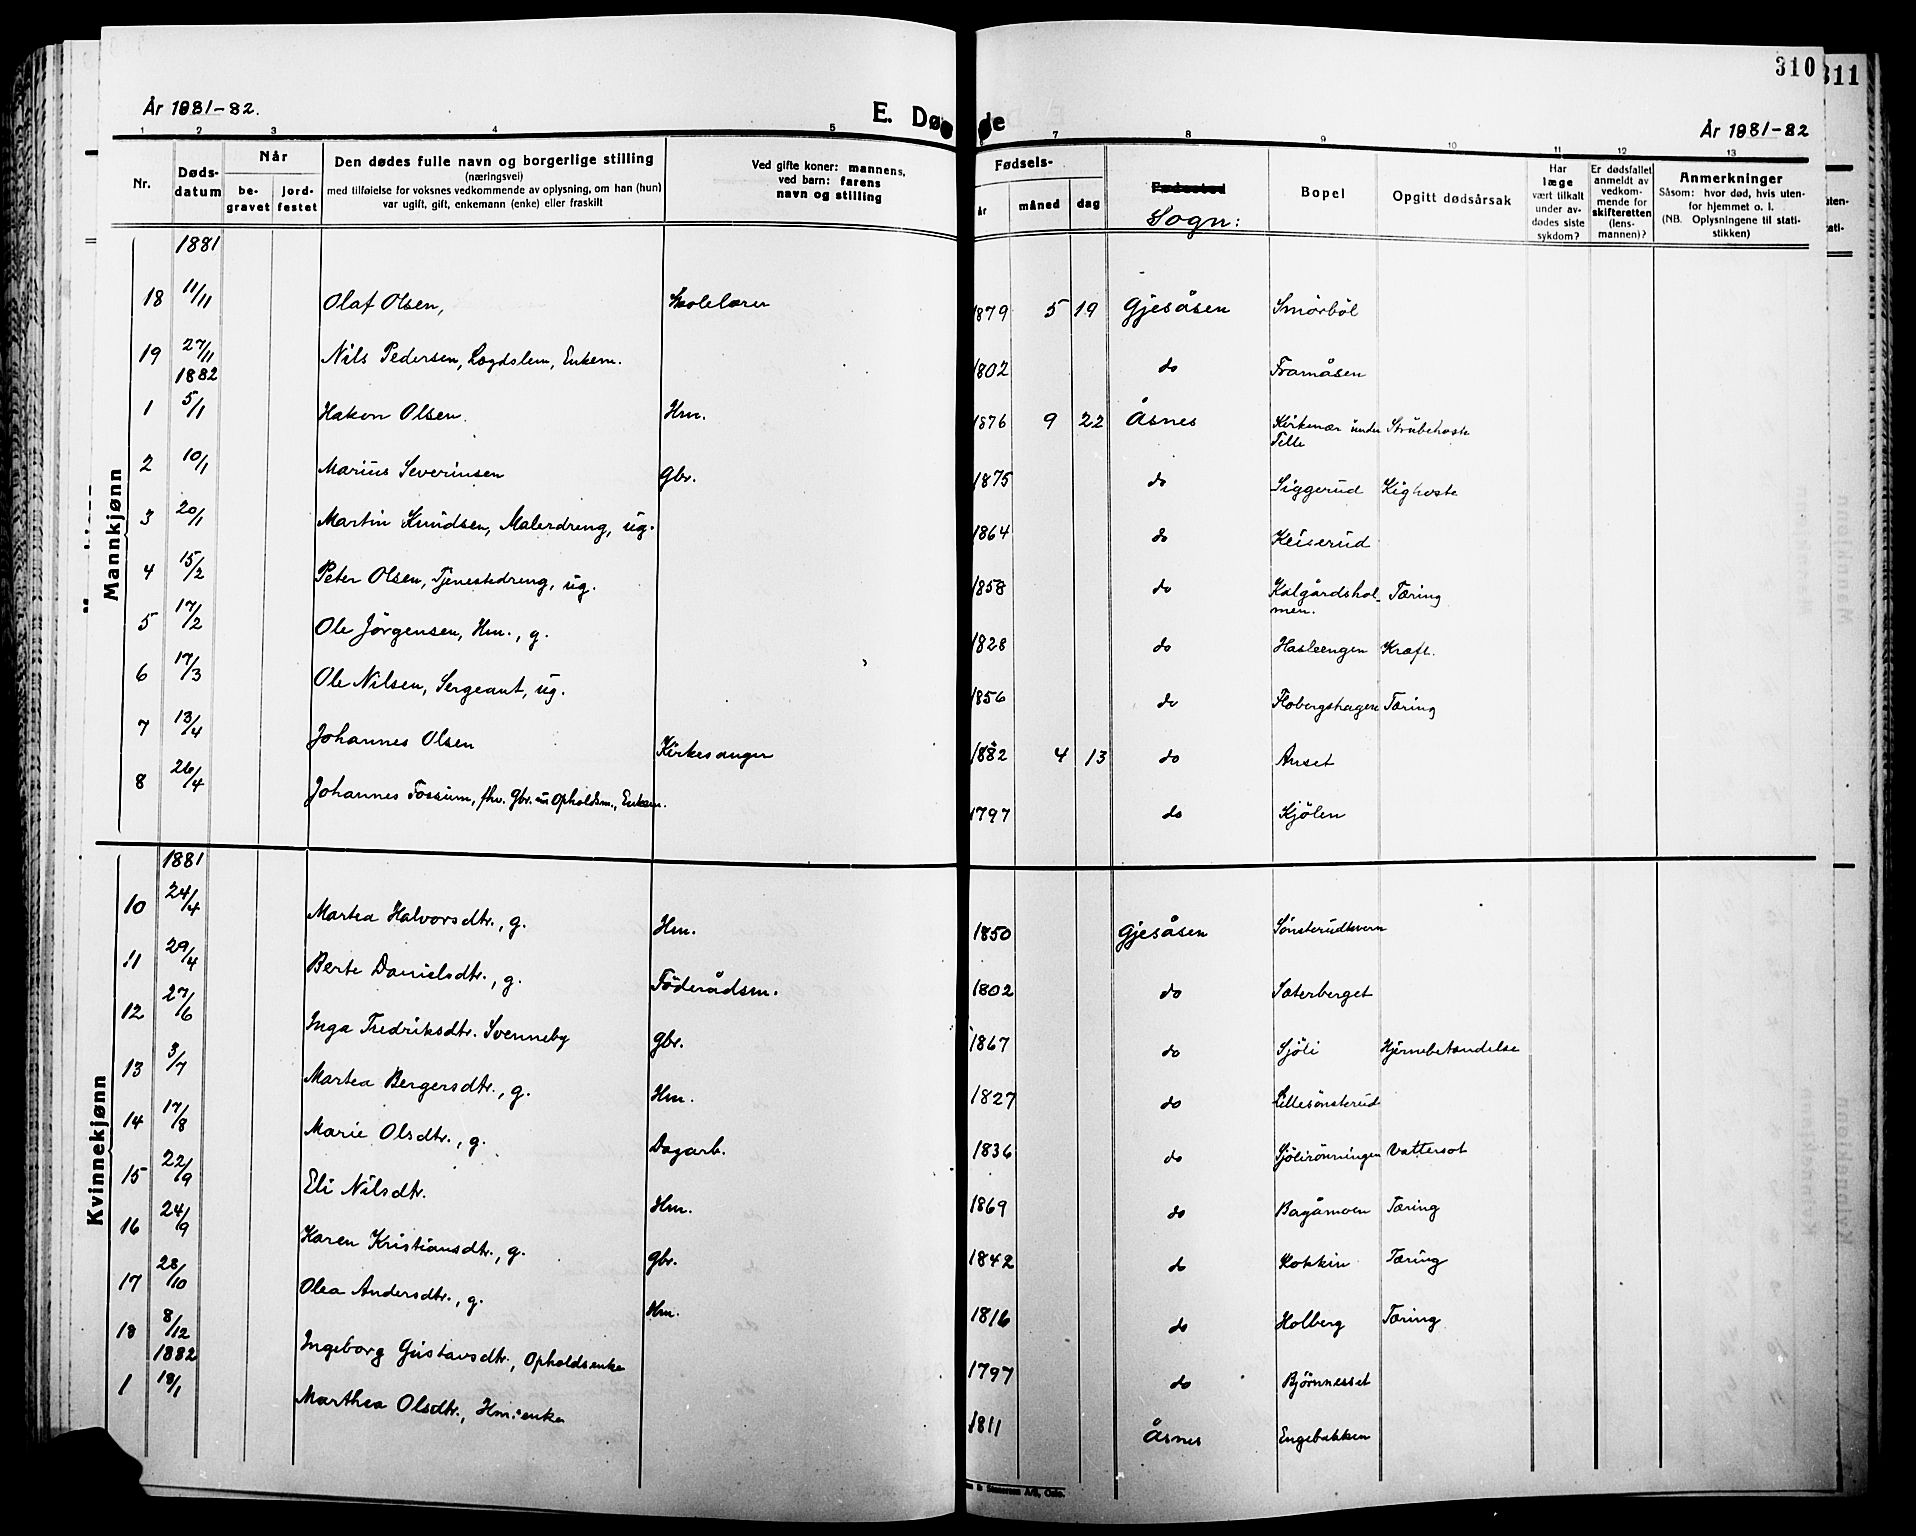 310
311
År 1881-82.
E. Dø de
År 1881-82
1 2 3 4 5 7 8 9 10 11 12 13
Nr.
Døds-
datum
Når
be-
gravet
jord-
festet
Den dødes fulle navn og borgerlige stilling
(næringsvei)
med tilføielse for voksnes vedkommende av oplysning, om han (hun)
var ugift, gift, enkemann (enke) eller fraskilt
Ved gifte koner: mannens,
ved barn: farens
navn og stilling
Fødsels-
år måned dag
Fødested
Sogn:
Bopel
Opgitt dødsårsak
Har
læge
vært tilkalt
under av-
dødes siste
sykdom?
Er dødsfallet
anmeldt av
vedkom-
mende for
skifteretten
(lens-
mannen)?
Anmerkninger
Såsom: hvor død, hvis uten-
for hjemmet o. l.
(NB. Oplysningene til stati-
stikken)
Mannkjønn
1881
18 11/11 Olaf Olsen, Skolelærer 1879 5 19 Gjesåsen Smörböl
19 27/11 Nils Pedersen, Lægdslem, Enkem. 1802 do Framåsen
1882
1 5/1 Hakon Olsen. Hm. 1876 9 22 Åsnes Kirkenær under Strubehoste
Telle
2 10/1 Marius Severinsen Gbr. 1875 do Siggerud Kighoste
3 20/1 Martin Knudsen, Malerdreng, ug. 1864 do Keiserud
4 15/2 Peter Olsen, Tjenestedreng, ug. 1858 do Kalgårdshol- Tæring
men.
5 17/2 Ole Jörgensen, Hm., g. 1828 do Hasleengen Kræft.
6 17/3 Ole Nilsen, Sergeant, ug. 1856 do Flobergshagen Tæring
7 13/4 Johannes Olsen Kirkesanger 1882 4 13 do Anset
8 26/4 Johannes Fossum, fhv. Gbr. nu Opholdsm., Enkem. 1797 do Kjölen
Kvinnekjønn
1881
10 24/4 Martea Halvorsdtr., g. Hm. 1850 Gjesåsen Sönsterudkvern
11 29/4 Berte Danielsdtr., g. Föderådsm. 1802 do Sæterberget
12 27/6 Inga Fredriksdtr. Svenneby Gbr. 1867 do Sjöli Hjernebetændelse
13 3/7 Martea Bergersdtr., g. Hm. 1827 do Lillesönsterud
14 17/8 Marie Olsdtr., g. Dagarb. 1836 do Sjölirönningen Vattersot
15 22/9 Eli Nilsdtr. Hm. 1869 do Bagåmoen Tæring
16 24/9 Karen Kristiansdtr., g. Gbr. 1842 do Kokkin Tæring
17 28/10 Olea Andersdtr., g. Hm. 1816 do Holberg Tæring
18 8/12 Ingeborg Gustavsdtr., Opholdsenke 1797 do Björnnesset
1882
1 18/1 Marthea Olsdtr., Hm.enke 1811 Åsnes Engebakken